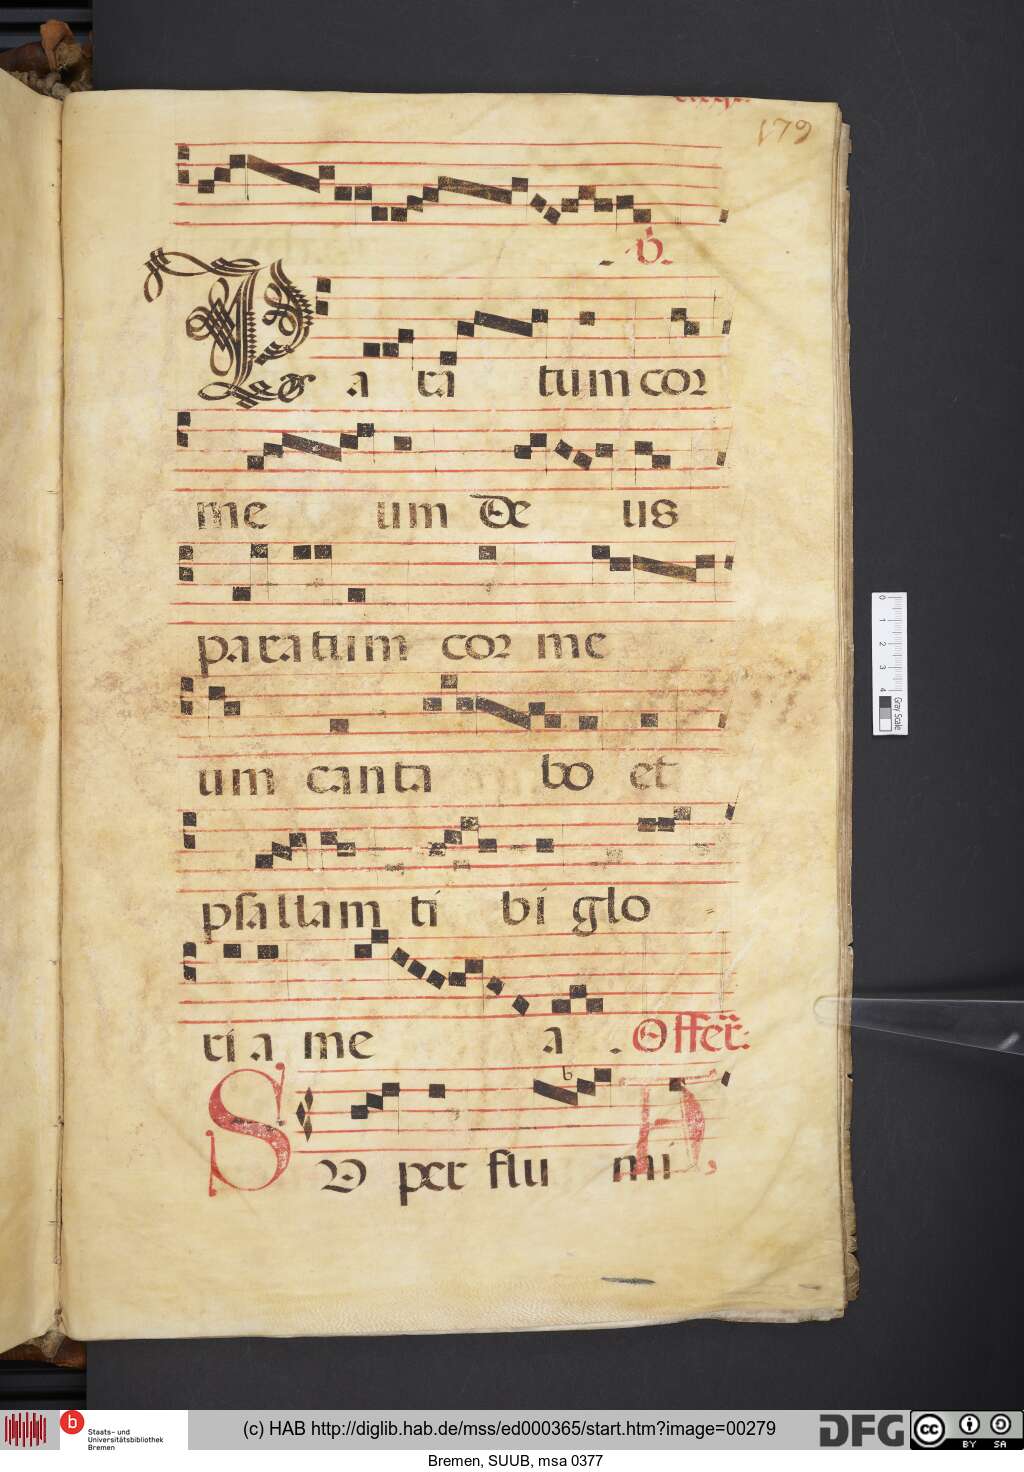 179
℣.
Par a ra tum cor
me um De us
paratum cor me
um canta bo et
psallam ti bi glo
ri a me a. Offerr:
SUper flumi
0 1 2 3 4 Gray Scale
b Staats- und Universitätsbibliothek Bremen
(c) HAB http://diglib.hab.de/mss/ed000365/start.htm?image=00279
DFG cc BY SA
Bremen, SUUB, msa 0377